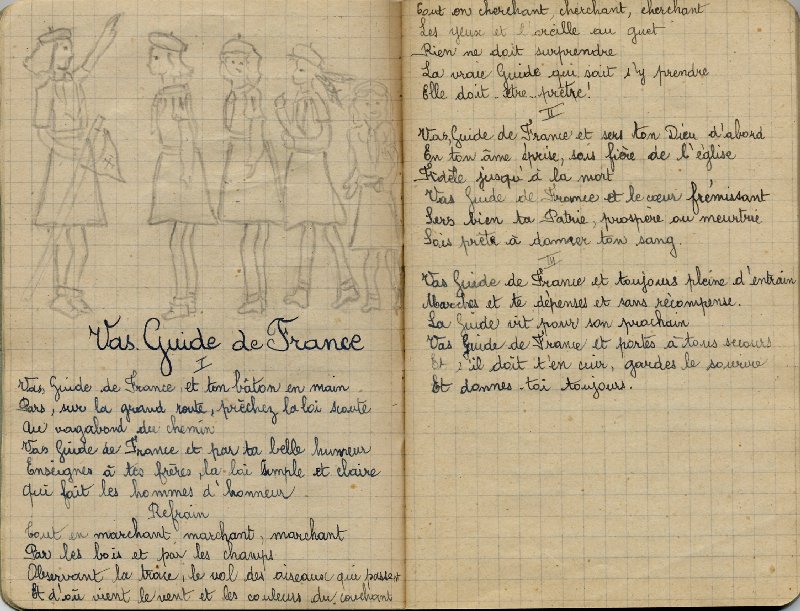 Vas Guide de France
I
Vas, Guide de France, et ton bâton en main
Pars, sur la grand route, prêchez la loi scoute
Au vagabond du chemin
Vas Guide de France et par ta belle humeur
Enseignes à tes frères, la loi simple et claire
Qui fait les hommes d'honneur
Refrain
Tout en marchant, marchant, marchant
Par les bois et par les champs
Observant la trace, le vol des oiseaux qui passent
Et d'où vient le vent et les couleurs du couchant
Tout en cherchant, cherchant, cherchant
Les yeux et l'oreille au guet
Rien ne doit surprendre
La vraie Guide qui sait s'y prendre
Elle doit être prête!
II
Vas, Guide de France et sers ton Dieu d'abord
En ton âme éprise, sois fière de l'église
Fidèle jusqu'à la mort
Vas Guide de France et le cœur frémissant
Sers bien ta Patrie, prospère ou meurtrie
Sois prête à donner ton sang.
III
Vas Guide de France et toujours pleine d'entrain
Marches et te dépenses et sans récompense.
La Guide vit pour son prochain
Vas Guide de France et portes à tous secours
Et s'il doit t'en cuir, gardes le sourire
Et donnes-toi toujours.